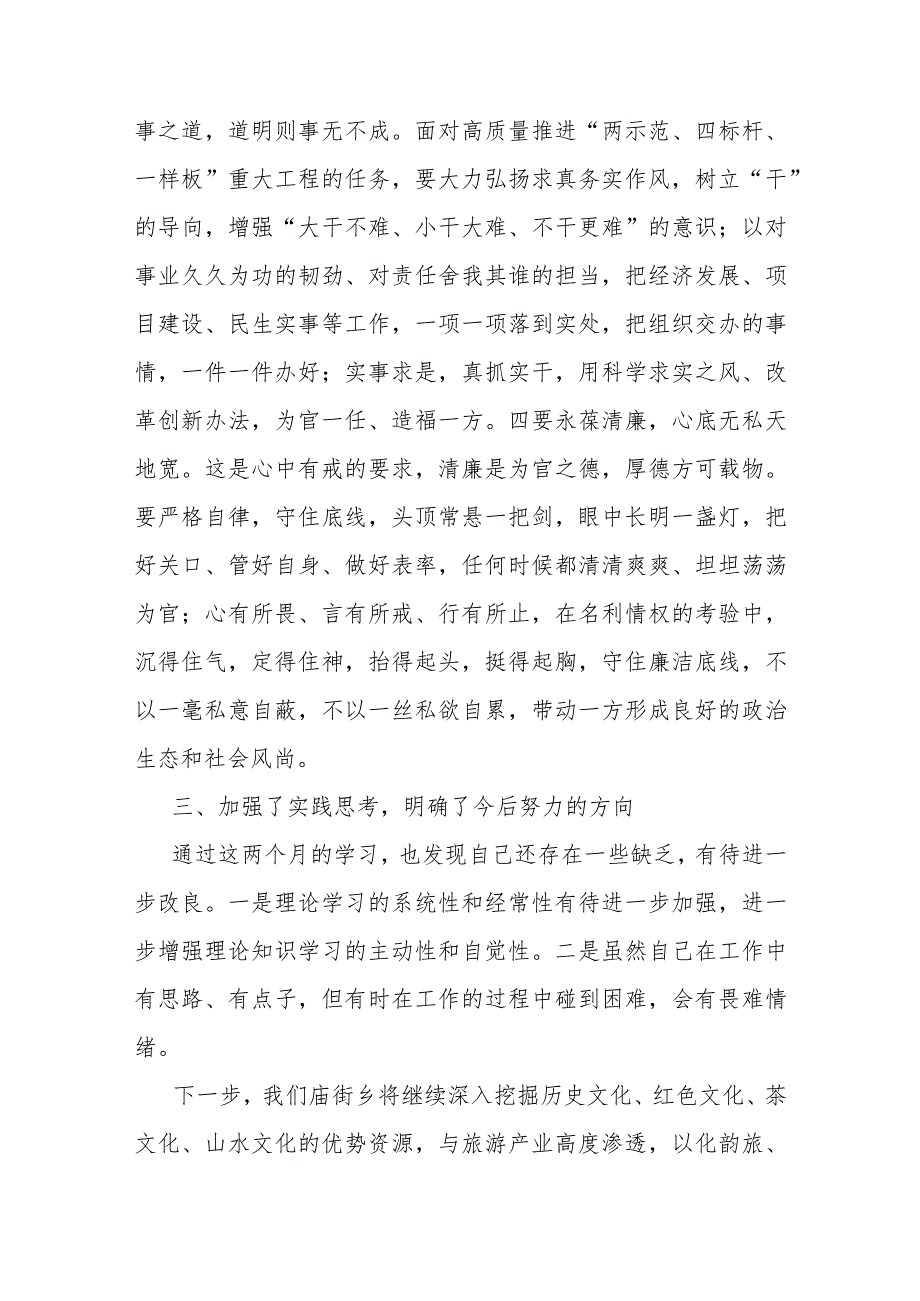 事之道，道明则事无不成。面对高质量推进“两示范、四标杆、
一样板”重大工程的任务，要大力弘扬求真务实作风，树立“干”
的导向，增强“大干不难、小干大难、不干更难”的意识；以对
事业久久为功的韧劲、对责任舍我其谁的担当，把经济发展、项
目建设、民生实事等工作，一项一项落到实处，把组织交办的事
情，一件一件办好；实事求是，真抓实干，用科学求实之风、改
革创新办法，为官一任、造福一方。四要永葆清廉，心底无私天
地宽。这是心中有戒的要求，清廉是为官之德，厚德方可载物。
要严格自律，守住底线，头顶常悬一把剑，眼中长明一盏灯，把
好关口、管好自身、做好表率，任何时候都清清爽爽、坦坦荡荡
为官；心有所畏、言有所戒、行有所止，在名利情权的考验中，
沉得住气，定得住神，抬得起头，挺得起胸，守住廉洁底线，不
以一毫私意自蔽，不以一丝私欲自累，带动一方形成良好的政治
生态和社会风尚。
三、加强了实践思考，明确了今后努力的方向
通过这两个月的学习，也发现自己还存在一些缺乏，有待进一
步改良。一是理论学习的系统性和经常性有待进一步加强，进一
步增强理论知识学习的主动性和自觉性。二是虽然自己在工作中
有思路、有点子，但有时在工作的过程中碰到困难，会有畏难情
绪。
下一步，我们庙街乡将继续深入挖掘历史文化、红色文化、茶
文化、山水文化的优势资源，与旅游产业高度渗透，以化韵旅、